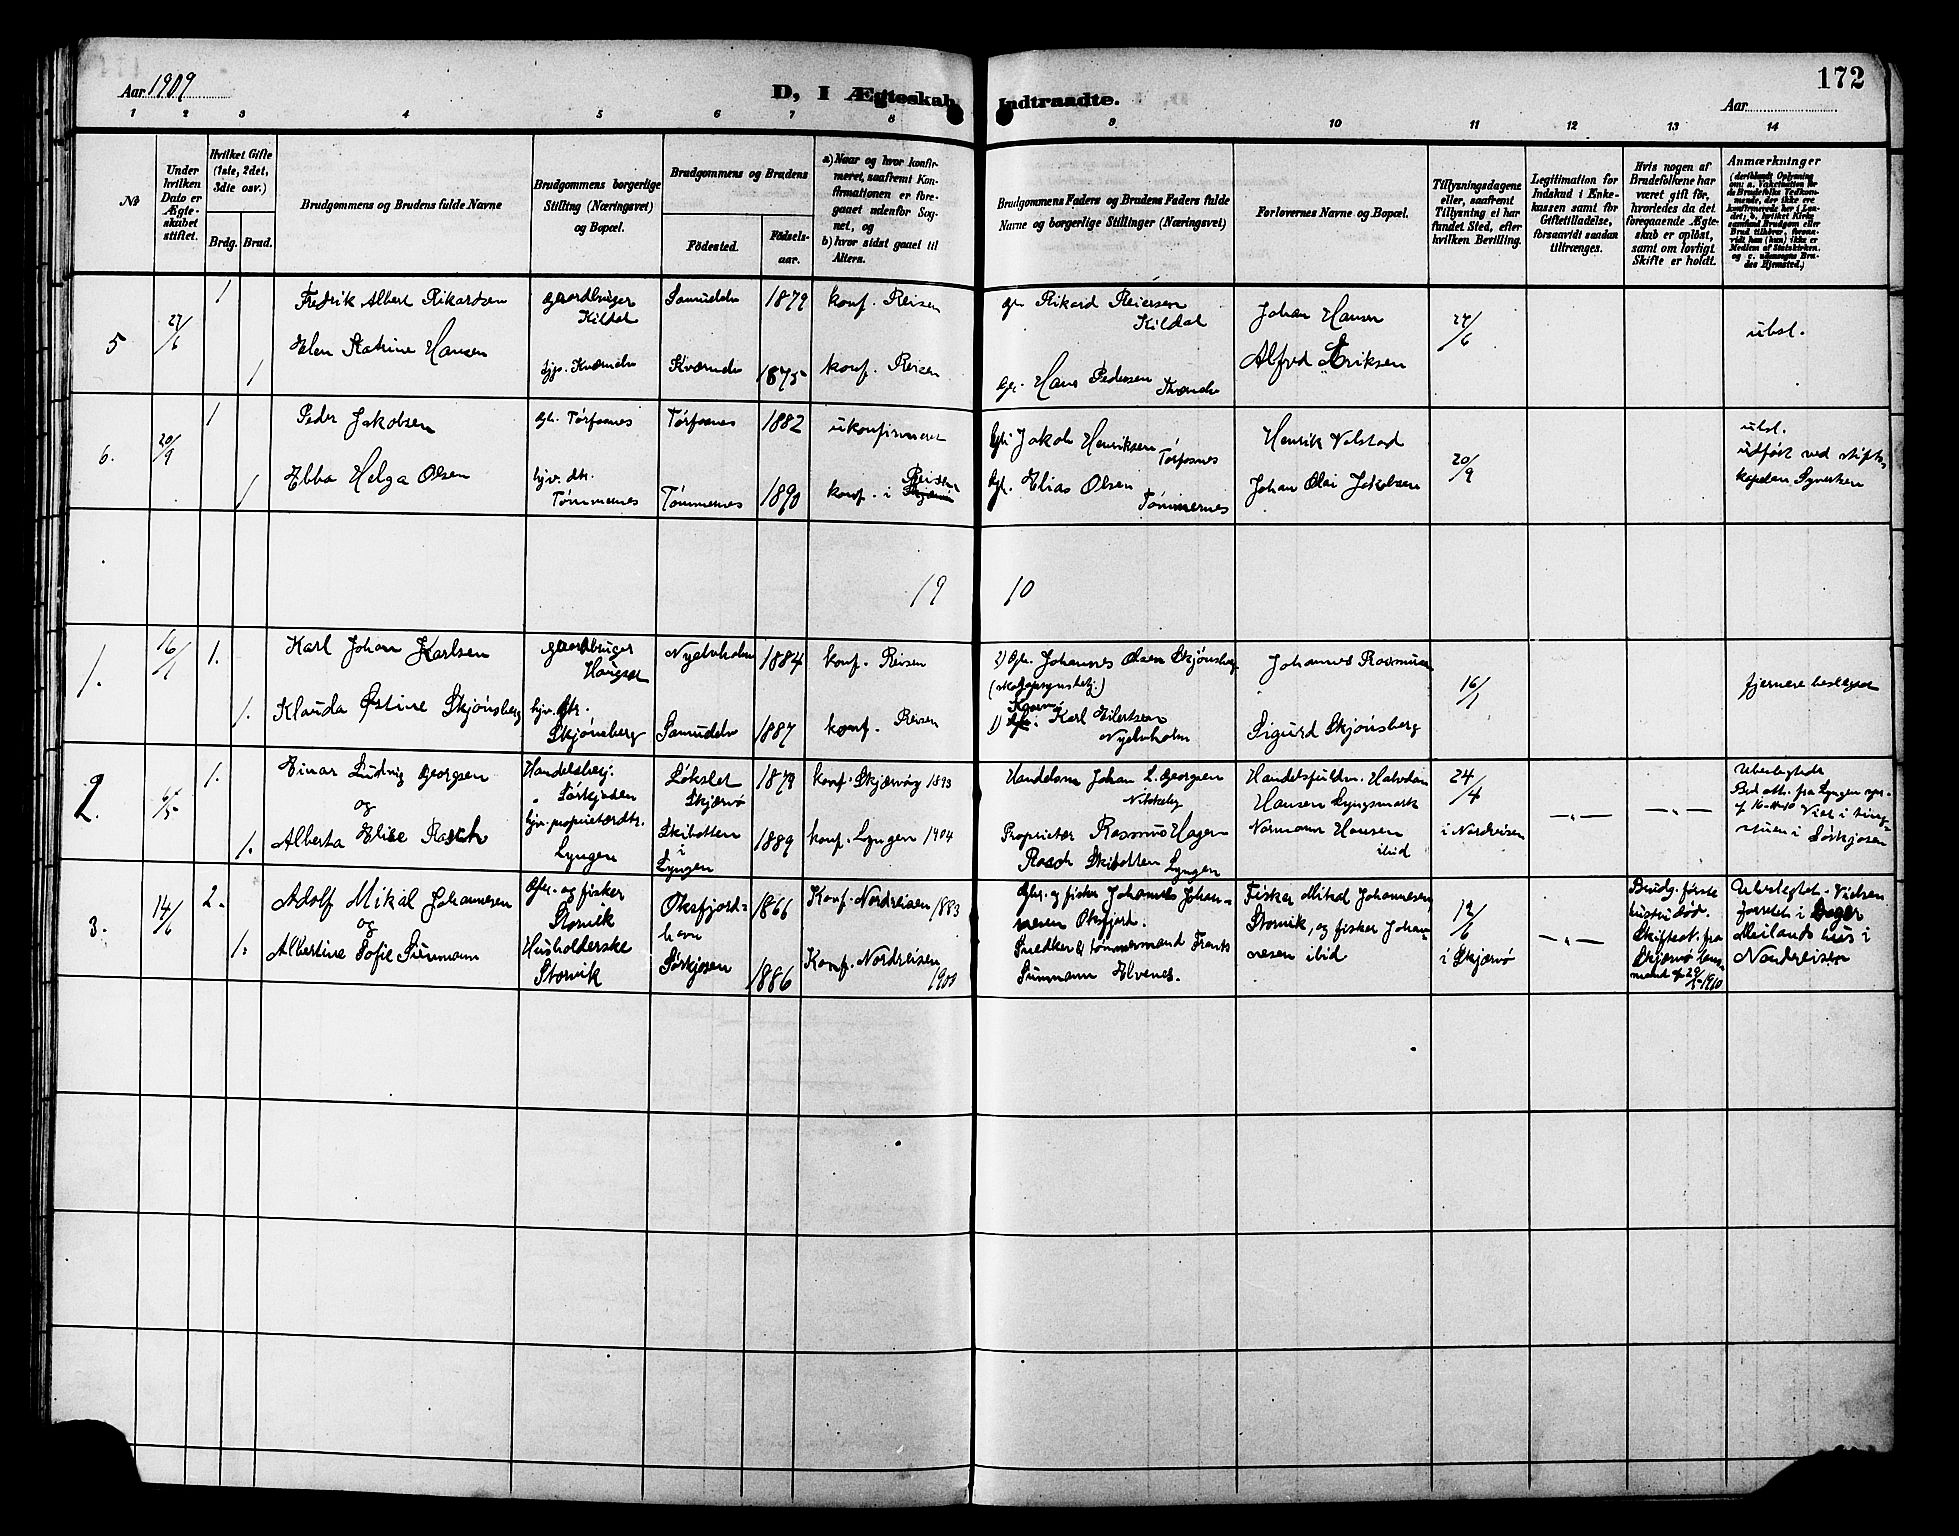 172
Aar 1909
D, I Ægteskab Indtraadte.
Aar
1 2 3 4 5 6 7 8 9 10 11 12 13 14
No
Under hvilken Dato er Ægteskabet stiftet.
Hvilket Gifte (1ste, 2det, 3die osv.)
Brdg. Brud.
Brudgommens og Brudens fulde Navne
Brudgommens borgerlige Stilling (Næringsvei) og Bopæl.
Brudgommens og Brudens
Födested.
Födselsaar.
a) Naar og hvor konfirmeret, saafremt Konfirmationen er foregaaet udenfor Sognet, og
b) hvor sidst gaaet til Alters.
Brudgommens Faders og Brudens Faders fulde Navne og borgerlige Stillinger (Næringsvei)
Forlovernes Navne og Bopæl.
Tillysningsdagene eller, saafremt Tillysning ei har fundet Sted, efter hvilken Bevilling.
Legitimation for Indskud i Enkekassen samt for Giftetilladelse, forsaavidt saadan tiltrænges.
Hvis nogen af Brudefolkene har været gift för, hvorledes da det foregaaende Ægteskab er oplöst, samt om lovligt Skifte er holdt.
Anmærkninger
5 27/6 1 Fredrik Albert Rikardsen gaardbruger Kildal Samuelelv 1879 konf. Reisen gbr. Rikard Reiersen Kildal Johan Hansen 27/6 ubsl.
1 Elen Katrine Hansen Kværnelv 1875 konf. Reisen gbr. Hans Pedersen Alfred Eriksen
6. 20/9 1 Peder Jakobsen gbr. Tørfosnes Tørfosnes 1882 ukonfirmeret gbr. Jakob Henriksen Tørfosnes Henrik Volstad 20/9 ubsl. udført ved stiftskapelan Syvertsen
1 Ebba Helga Olsen hjv. dtr. Tømmernes Tømmernes 1890 konf. i Reisen gbr. Elias Olsen Tømmernes Johan Olai Jakobsen
19 10
1. 16/1 1. Karl Johan Karlsen gaardbruger Hougset Nyelvholm 1884 konf. Reisen 2) gbr. Johannes Olsen Skjønsberg (skogopsynsbetj.) Johannes Rasmussen 16/1 fjernere beslægtet
1. Klauda Østine Skjønsberg hjv. dtr. Skjønsberg Samuelelv 1887 konf. Reisen 1) Karl Eilertsen Nyelvholm Sigurd Skjønsberg
2. 1. Einar Ludvig Georgsen Handelsbetj. Sørkjosen Løkslet Skjærvø 1879 konf. Skjærvøy 1893 Handelsm. Johan L. Georgsen Handelsfuldm. Halvdan Hansen Lyngsmark 24/4 i Nordreisen — „ — — „ — Ubeslegtede
og
1. Alberta Elise Rasch hjv. proprietærdtr. Lyngen Skibotten i Lyngen 1889 konf. Lyngen 1904 Proprietær Rasmus Hagen Rasch Skibotten Lyngen Normann Hansen ibid Viet i tingstuen i Sørkjosen
3. 14/6 2. Adolf Mikal Johannesen Gbr. og fisker Storvik Oksfjordhavn 1866 Konf. Nordreisen 1883 Gbr. og fisker Johannes Johannesen Oksfjord. Fisker Mikal Johannesen, Storvik, og fisker Johannesen ibid 12/6 i Skjærvø — „ — Brudg. første hustru død. Skifteat. fra Skjærvø lensmand 1910 Ubeslegtet. Vielsen forrettet i Meilands hus i Nordreisen
og
1. Albertine Sofie Sünmann Husholderske Storvik Sørkjosen 1886 Konf. Nordreisen Snedker & tømmermand Frants Sunmann Elvenes.